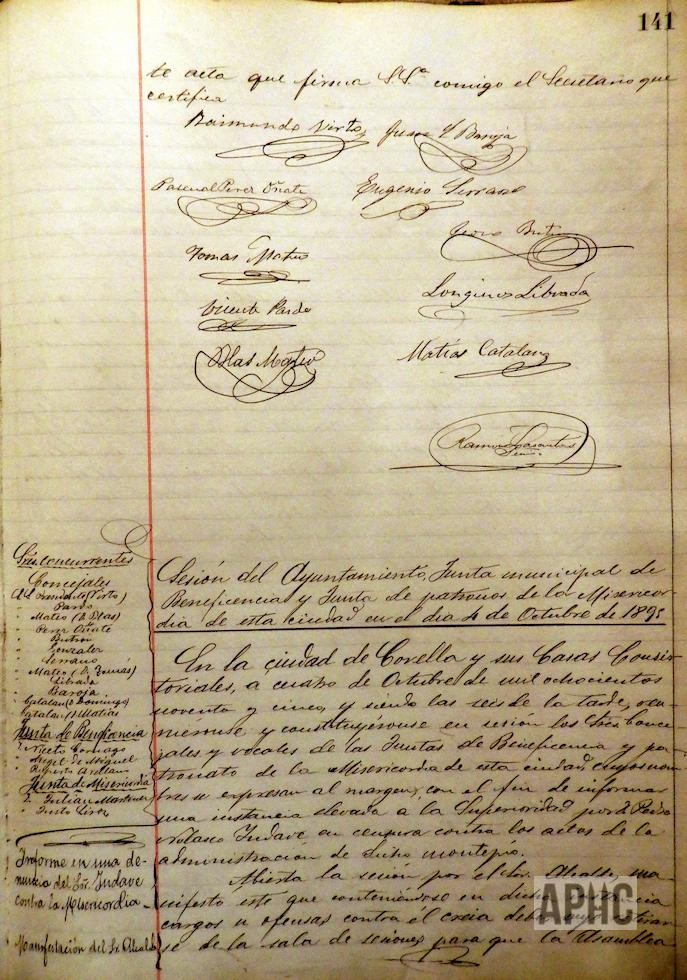 141
te acta que firma S.Sª comigo el Secretario que
certifica
Raimundo Virto
Juan Baroja
Pascual Perez Oñate
Eugenio Serrano
Tomas Mateo
Longinos Librada
Vicente Pardo
Blas Mateo
Matías Catalan
Ramon
Sres. Concurrentes
Concejales
Presidte. (Virto)
Pardo
Mateo (D. Blas)
Perez Oñate
Gonzalez
Serrano
Mateo (D. Tomás)
Librada
Baroja
Catalan (D. Domingo)
Catalan (D. Matías
Junta de Beneficencia
Angel de Miguel
Arellano
Junta de Misericordia
D. Julian Martinez
Justo
Informe en una de-
nuncia del Sr. Yndave
contra la Misericordia
Manifestación del Sr. Alcalde
Sesión del Ayuntamiento, Junta municipal de
Beneficencia y Junta de patronos de la Misericor-
dia de esta ciudad en el dia 4 de Octubre de 1895
En la ciudad de Corella y sus Casas Consis-
toriales, a cuatro de Octubre de mil ochocientos
noventa y cinco, y siendo las seis de la tarde, reu-
niéronse y constituyéronse en sesión los Sres. Conce-
jales y vocales de las Juntas de Beneficencia y pa-
tronato de la Misericordia de esta ciudad, cuyos nom-
bres se expresan al margen, con el fin de informar
una instancia elevada a la Superioridad por D. Pedro
Nolasco Yndave en censura contra los actos de la
administración de dicho montepío.
Abierta la sesión por el Sr. Alcalde, ma-
nifestó este que conteniéndose en dicha instancia
cargos u ofensas contra el creia debia retirar-
se de la sala de sesiones para que la Asamblea
APHC